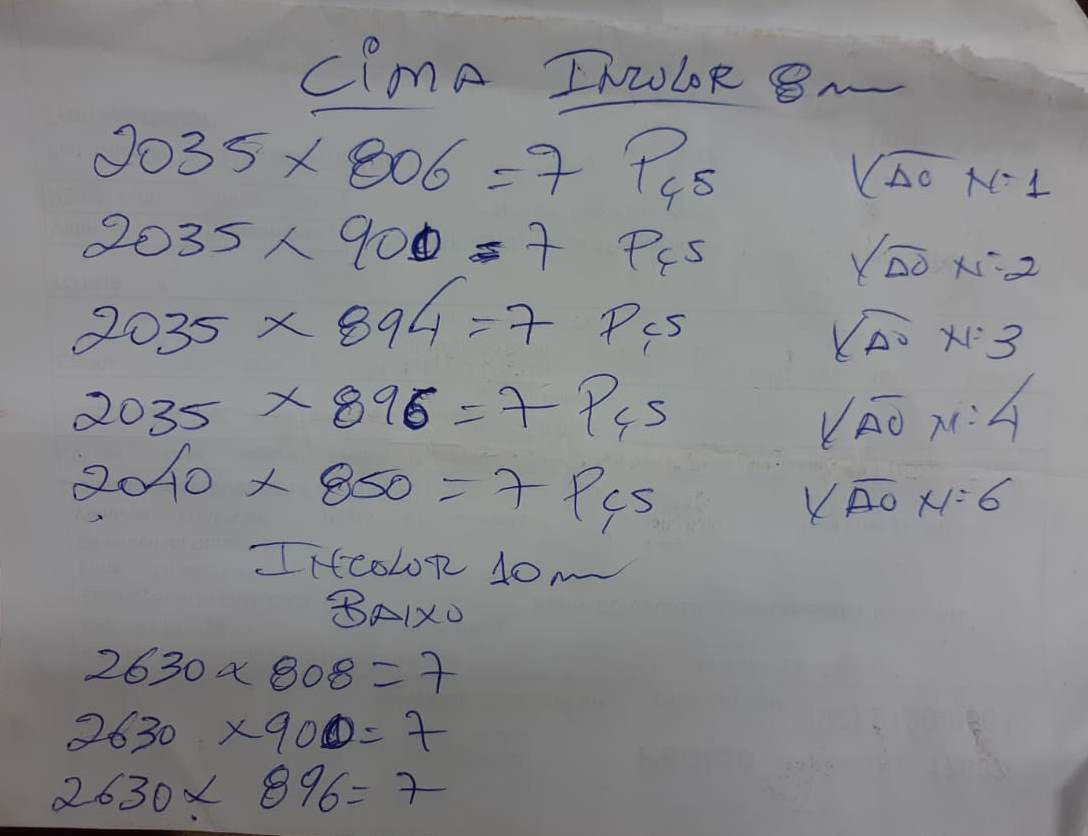 CIMA INCOLOR 8mm
2035 x 806 = 7 Pçs VÃO N=1
2035 x 900 = 7 Pçs VÃO N=2
2035 x 894 = 7 Pçs VÃO N=3
2035 x 896 = 7 Pçs VÃO N=4
2040 x 850 = 7 Pçs VÃO N=6
INCOLOR 10mm
BAIXO
2630 x 808 = 7
2630 x 900 = 7
2630 x 896 = 7